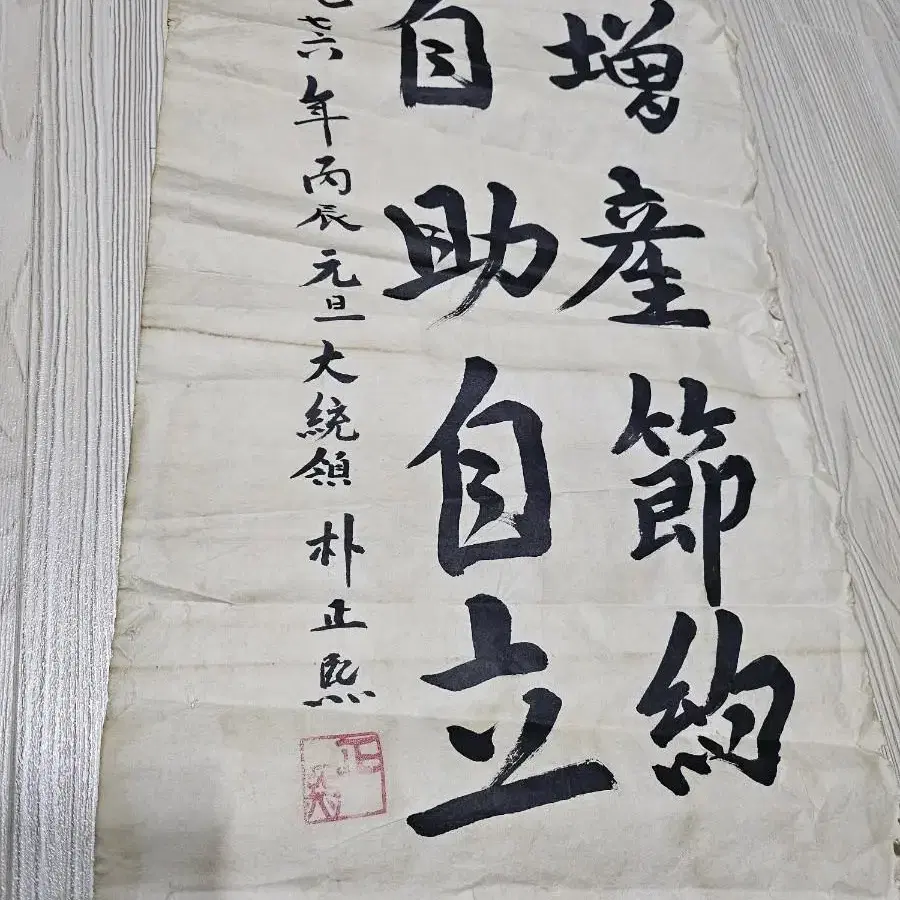 增產節約
自助自立
七六年丙辰元旦大統領 朴正熙